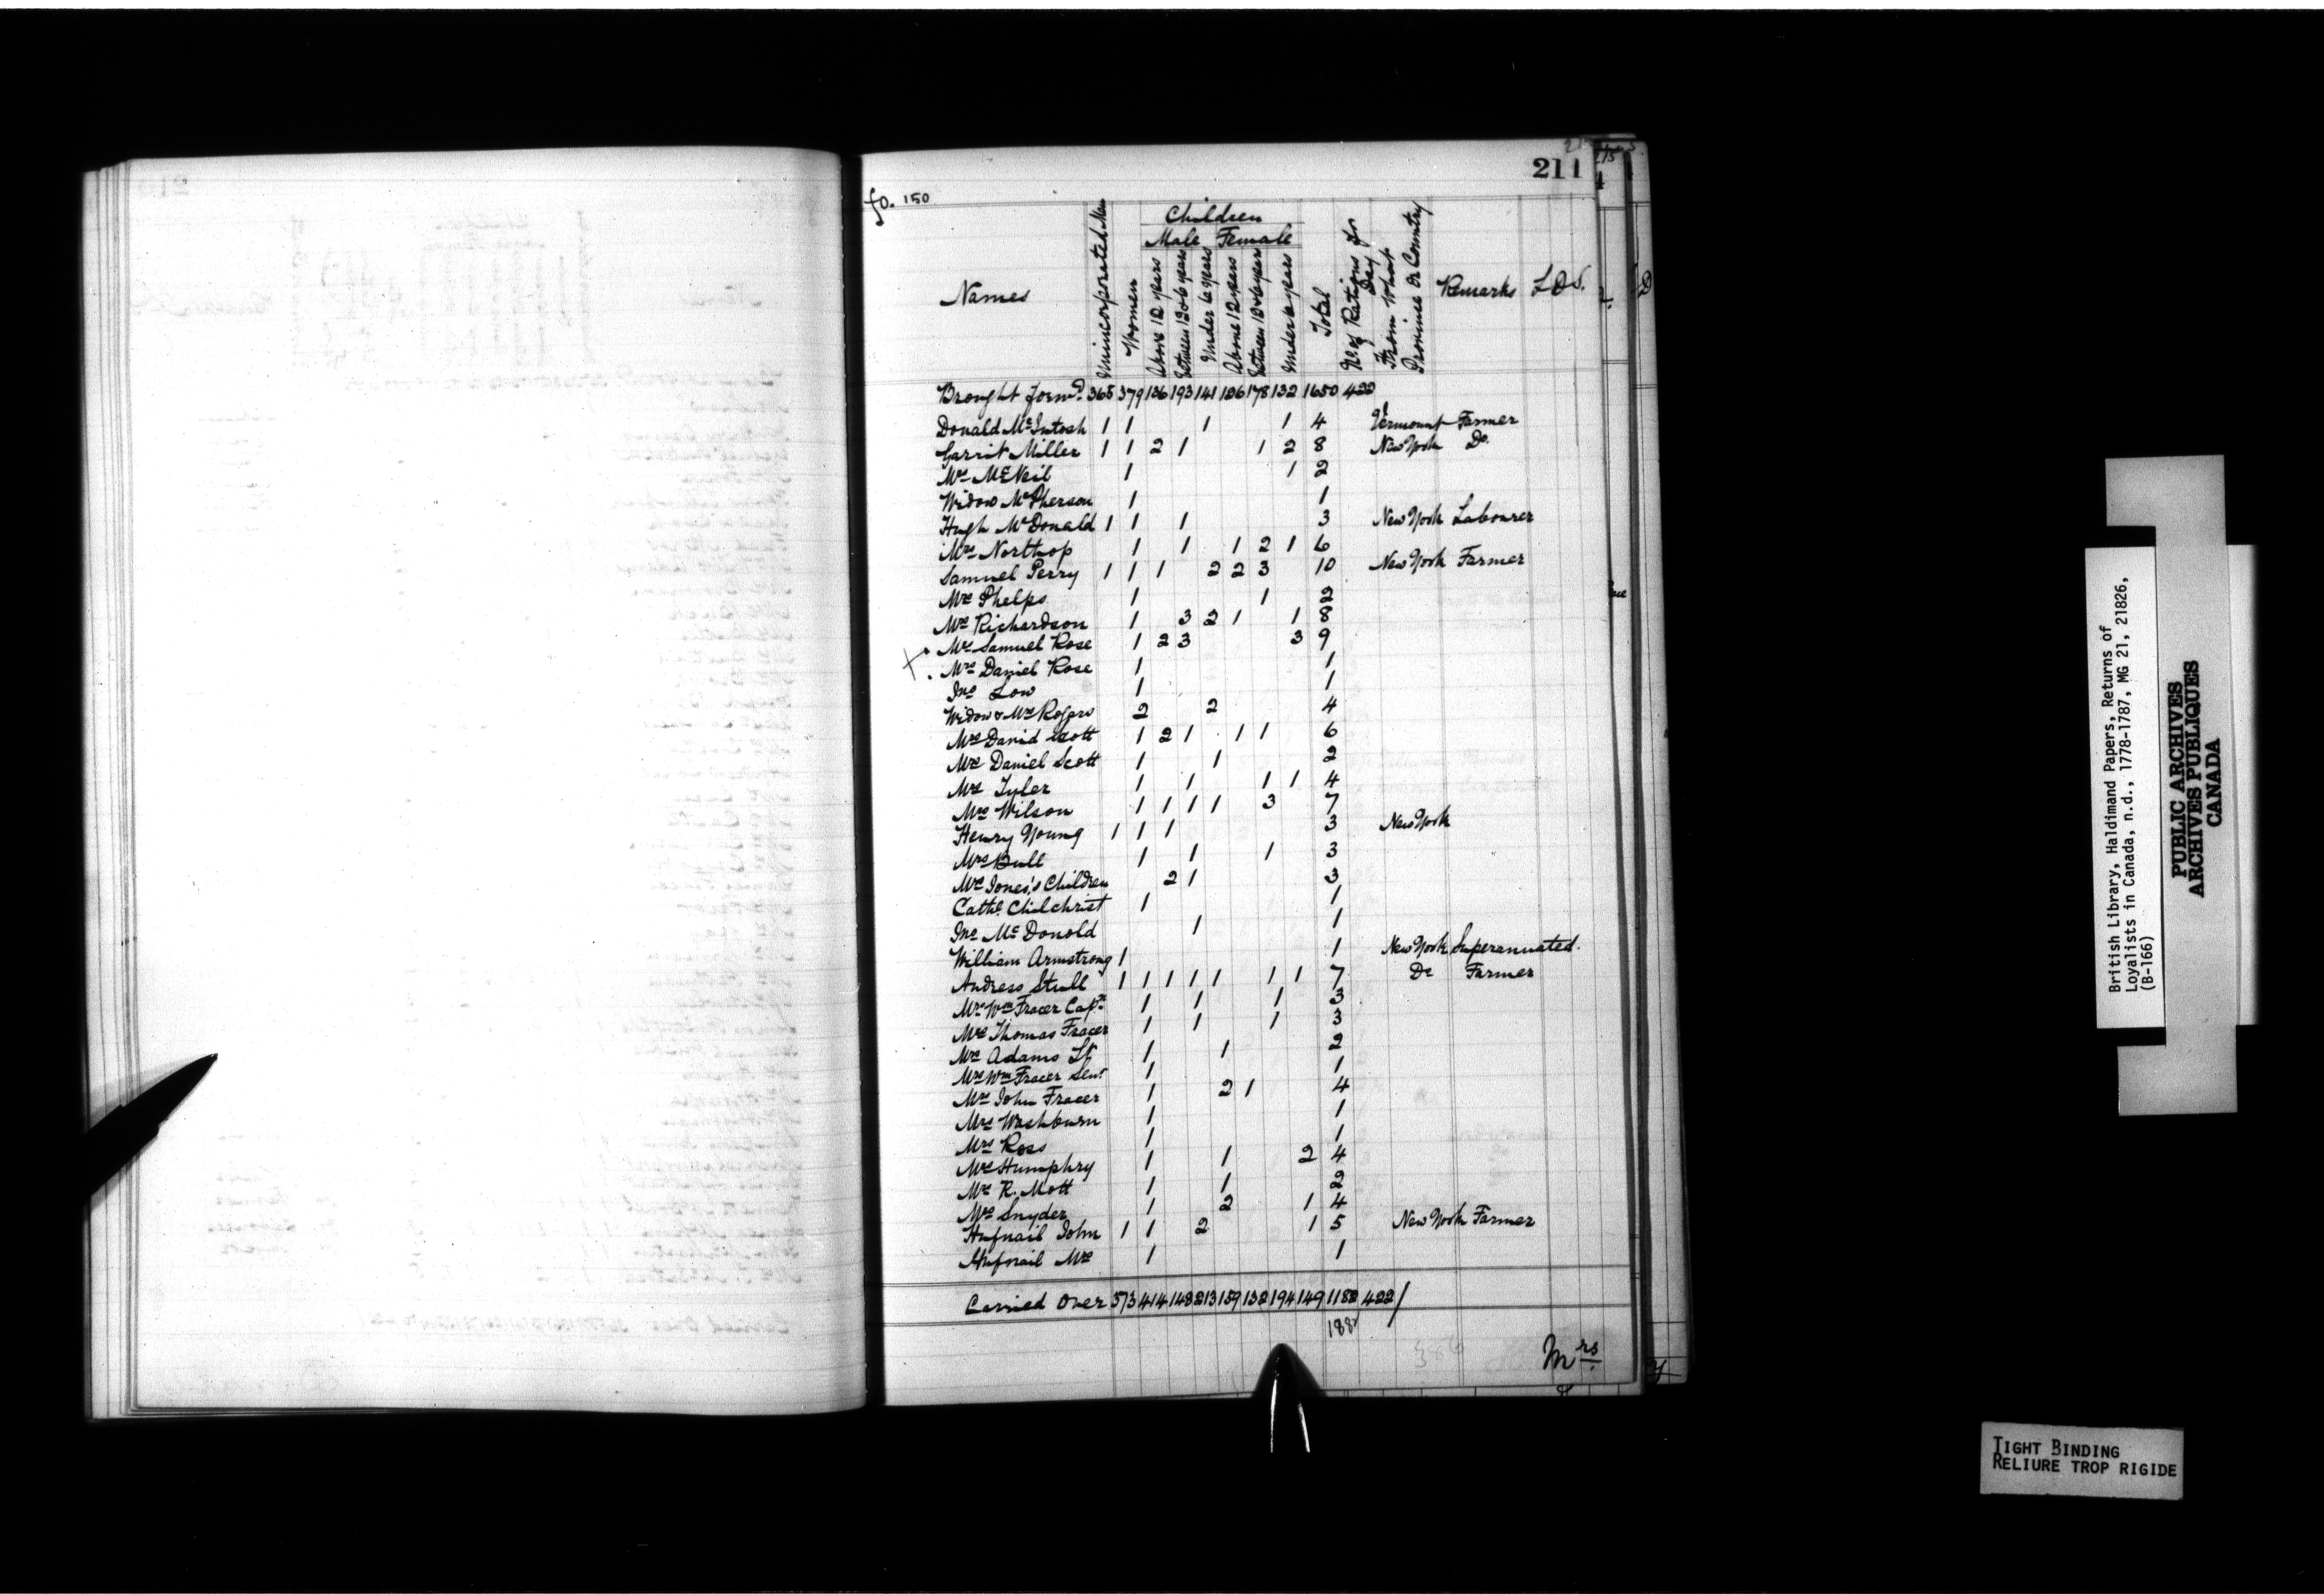 211
fo. 150
Children
Male Female
Names Unincorporated Men Women Above 12 years between 12 & 6 years Under 6 years Above 12 years between 12 & 6 years Under 6 years Total No of Rations for Day From What Province or Country Remarks
Brought forwd. 365 379 136 193 141 126 178 132 1650 422
Donald McIntosh 1 1 1 1 4 Vermont Farmer
Garrit Miller 1 1 2 1 1 2 8 New York Do.
Mrs McNeil 1 1 2
Widow McPherson 1 1
Hugh McDonald 1 1 1 3 New York Labourer
Mrs Northop 1 1 1 2 1 6
Samuel Perry 1 1 1 2 2 3 10 New York Farmer
Mrs Phelps 1 1 2
Mrs Richardson 1 3 2 1 1 8
Mrs Samuel Rose 1 2 3 3 9
Mrs Daniel Rose 1 1
Jno Low 1 1
Widow & Mrs Rogers 2 2 4
Mrs David Scott 1 2 1 1 1 6
Mrs Daniel Scott 1 1 2
Mrs Tyler 1 1 1 1 4
Mrs Wilson 1 1 1 1 3 7
Henry Young 1 1 1 3 New York
Mrs Bull 1 1 1 3
Mrs Jones's Children 2 1 3
Cathe. Chilchrist 1 1
Jno McDonold 1 1
William Armstrong 1 1 New York Superanuated.
Andress Strull 1 1 1 1 1 1 1 7 Do Farmer
Mrs Wm Fracer Captn 1 1 1 3
Mrs Thomas Fracer 1 1 1 3
Mrs Adams Lt 1 1 2
Mrs Wm Fracer Senr 1 1
Mrs John Fracer 1 2 1 4
Mrs Washburn 1 1
Mrs Ross 1 1
Mrs Humphry 1 1 2 4
Mrs R. Mott 1 1 2
Mrs Snyder 1 2 1 4
Hufnail John 1 1 2 1 5 New York Farmer
Hufnail Mrs 1 1
Carried Over 573 414 148 213 159 132 194 149 1182 422/
188
Mrs.
British Library, Haldimand Papers, Returns of
Loyalists in Canada, n.d., 1778-1787, MG 21, 21826,
(B-166)
PUBLIC ARCHIVES
ARCHIVES PUBLIQUES
CANADA
TIGHT BINDING
RELIURE TROP RIGIDE